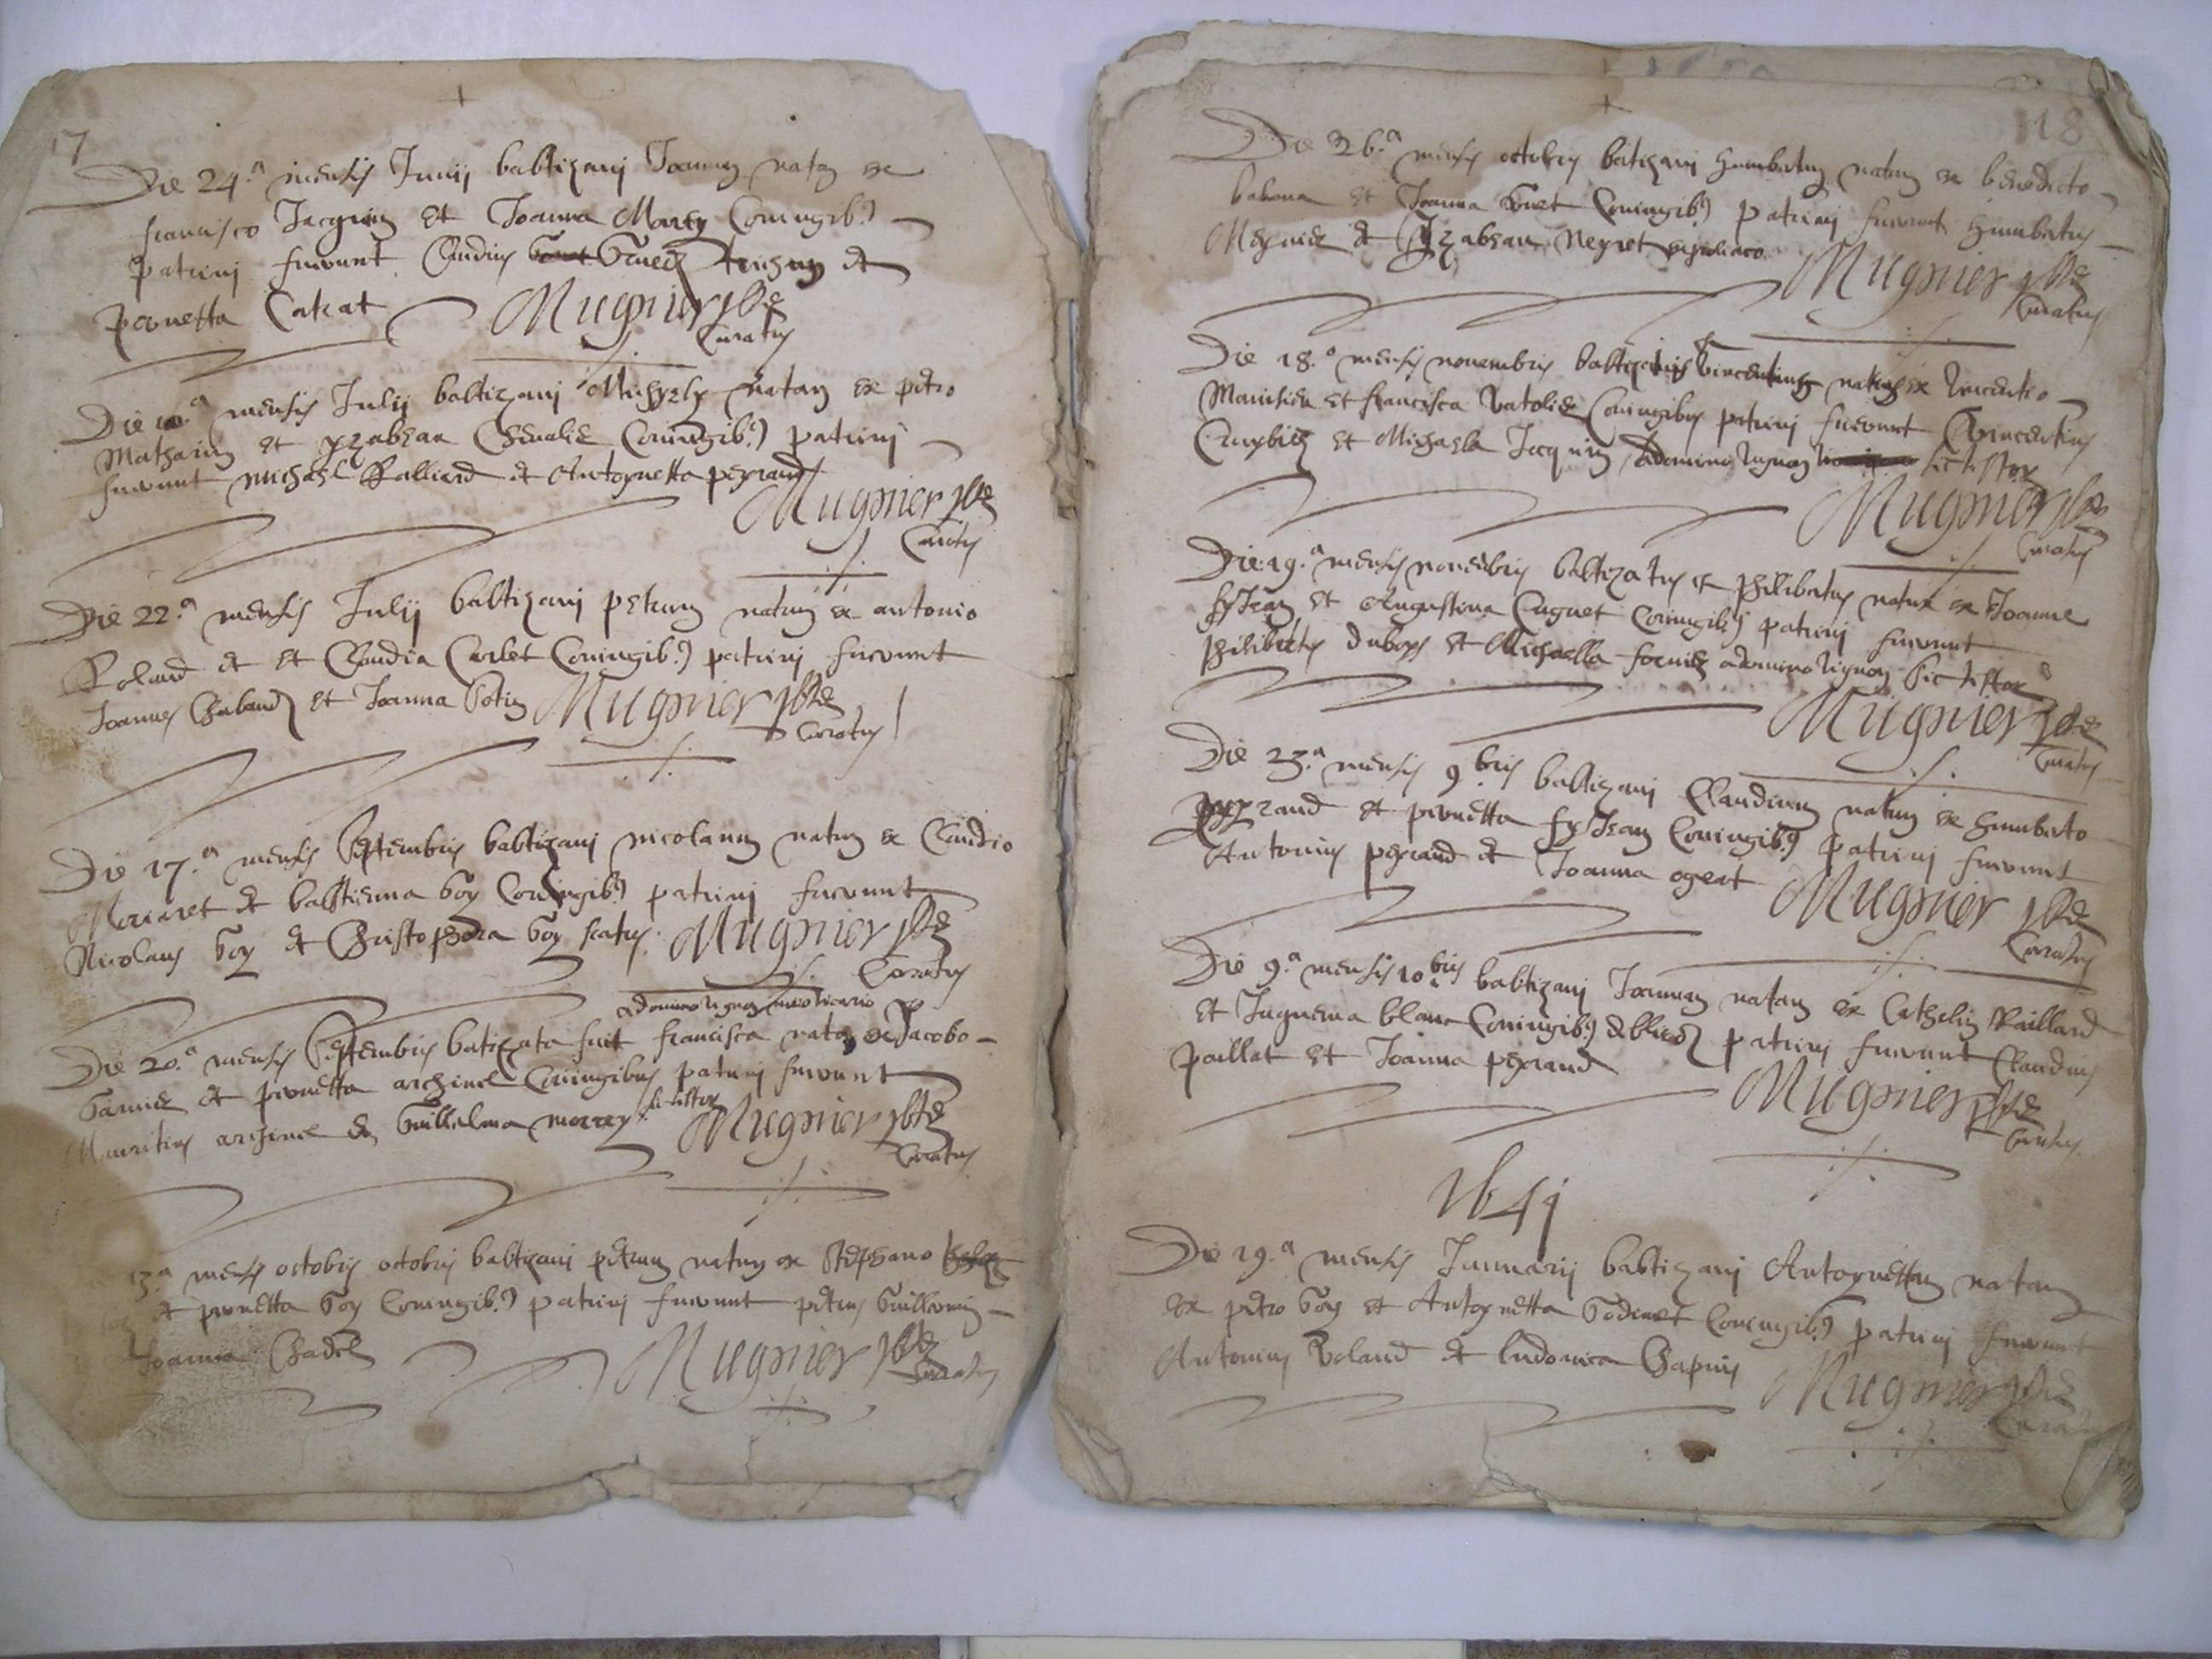 17
Die 24.a mensis Junij babtizavj Joannam natam ex
francisco Jacquin et Joanna Marty Coniugib.
patrinj fuerunt Claudius et
pernetta Catrat Mugnier pbr
Curatus
Die mensis Julij babtizavj natam ex petro
Mathurin et yzabeau Chevalie Coniugib. patrinj
fuerunt michael Ralliard et Antoynetta peyrand
Mugnier pbr
Curatus
Die 22.a mensis Julij babtizavj petrum natum ex antonio
Roland et et Claudia Carlet Coniugib. patrinj fuerunt
Joannes Chaband et Joanna Mugnier pbr
Curatus
Die 17.a mensis septembris babtizavj nicolaum natum ex Claudio
Mararet et babstienna Goy Coniugib. patrinj fuerunt
Nicolaus Goy et Christophora Goy Mugnier pbr
Curatus
a domino vignon
Die 20.a mensis septembris batizata fuit francisca nata ex Jacobo
Garnie et pernetta archine Coniugibus patrinj fuerunt
Mauritius archine et Guillelma morrey Mugnier pbr
Curatus
13.a mensis octobris octobris babtizavj petrum natum ex Stephano
et pernetta Goy Coniugib. patrinj fuerunt petrus Guillermin
Joanna Chadel Mugnier pbr
Curatus
118
Die 26.a mensis octobris batizavj humbertum natum ex benedicto
babona et Joanna Coniugib. patrinj fuerunt humbertus
Meynier et Yzabeau Neyret
Mugnier pbr
Curatus
Die 18.o mensis novembris babtizatus vincentius natus ex vincentio
et francisca Vatolie Coniugibus patrinj fuerunt vincentius
et Michaela Jacquin a domino vignon sic testor
Mugnier pbr
Curatus
Die 19.a mensis novembris babtizatus est philibertus natus ex Joanne
et Augustina Cuguet Coniugib. patrinj fuerunt
philibertus duboys et Michaella fornie a domino vignon sic testor
Mugnier pbr
Curatus
Die 23.a mensis 9bris babtizavj Claudium natum ex humberto
peyrand et pernetta Coniugib. patrinj fuerunt
Antonius peyrand et Joanna ogeat Mugnier pbr
Curatus
Die 9.a mensis 10bris babtizavj Joannam natam ex Cathelin Raillard
et Juguema blanc Coniugib. patrinj fuerunt Claudius
paillat et Joanna peyrand
Mugnier pbr
Curatus
1641
Die 19.a mensis Januarij babtizavj Antoynettam natam
ex petro Goy et Antoynetta Godinet Coniugib. patrinj fuerunt
Antonius Roland et ludovica Chapuis
Mugnier pbr
Curatus